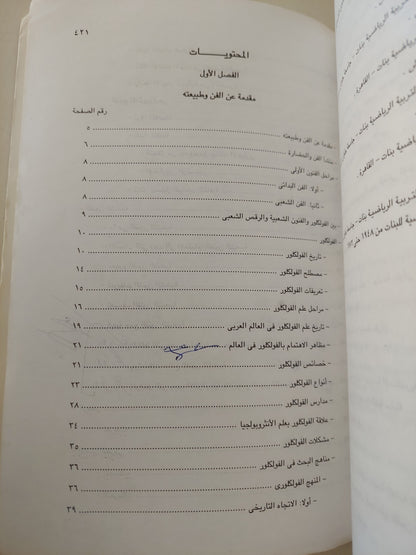 ٤٢١
المحتويـــات
الفصل الأول
مقدمة عن الفن وطبيعته
رقم الصفحة
- مقدمة عن الفن وطبيعته ٥
- منشأ الفن والحضارة ٦
- مراحل الفنون الأولى ٨
- أولا: الفن البدائى ٨
- ثانيا: الفن الشعبى ٨
- بين الفولكلور والفنون الشعبية والرقص الشعبى ٩
- الفولكلور ١٠
- تاريخ الفولكلور ١٠
- مصطلح الفولكلور ١٤
- تعريفات الفولكلور ١٥
- مراحل علم الفولكلور ١٦
- تاريخ علم الفولكلور فى العالم العربى ١٩
- مظاهر الاهتمام بالفولكلور فى العالم ٢١
- خصائص الفولكلور ٢١
- أنواع الفولكلور ٢٣
- مدارس الفولكلور ٢٨
- علاقة الفولكلور بعلم الأنثروبولجيا ٣٤
- مشكلات الفولكلور ٣٥
- مناهج البحث فى الفولكلور ٣٦
- المنهج الفولكلورى ٣٦
- أولا: الاتجاه التاريخى ٣٩
رياضية بنات - القاهرة
التربية الرياضية بنات -
رياضية بنات - القاهرة.
تربية الرياضية بنات -
ضية للبنات من ١٩٤٨ حتى